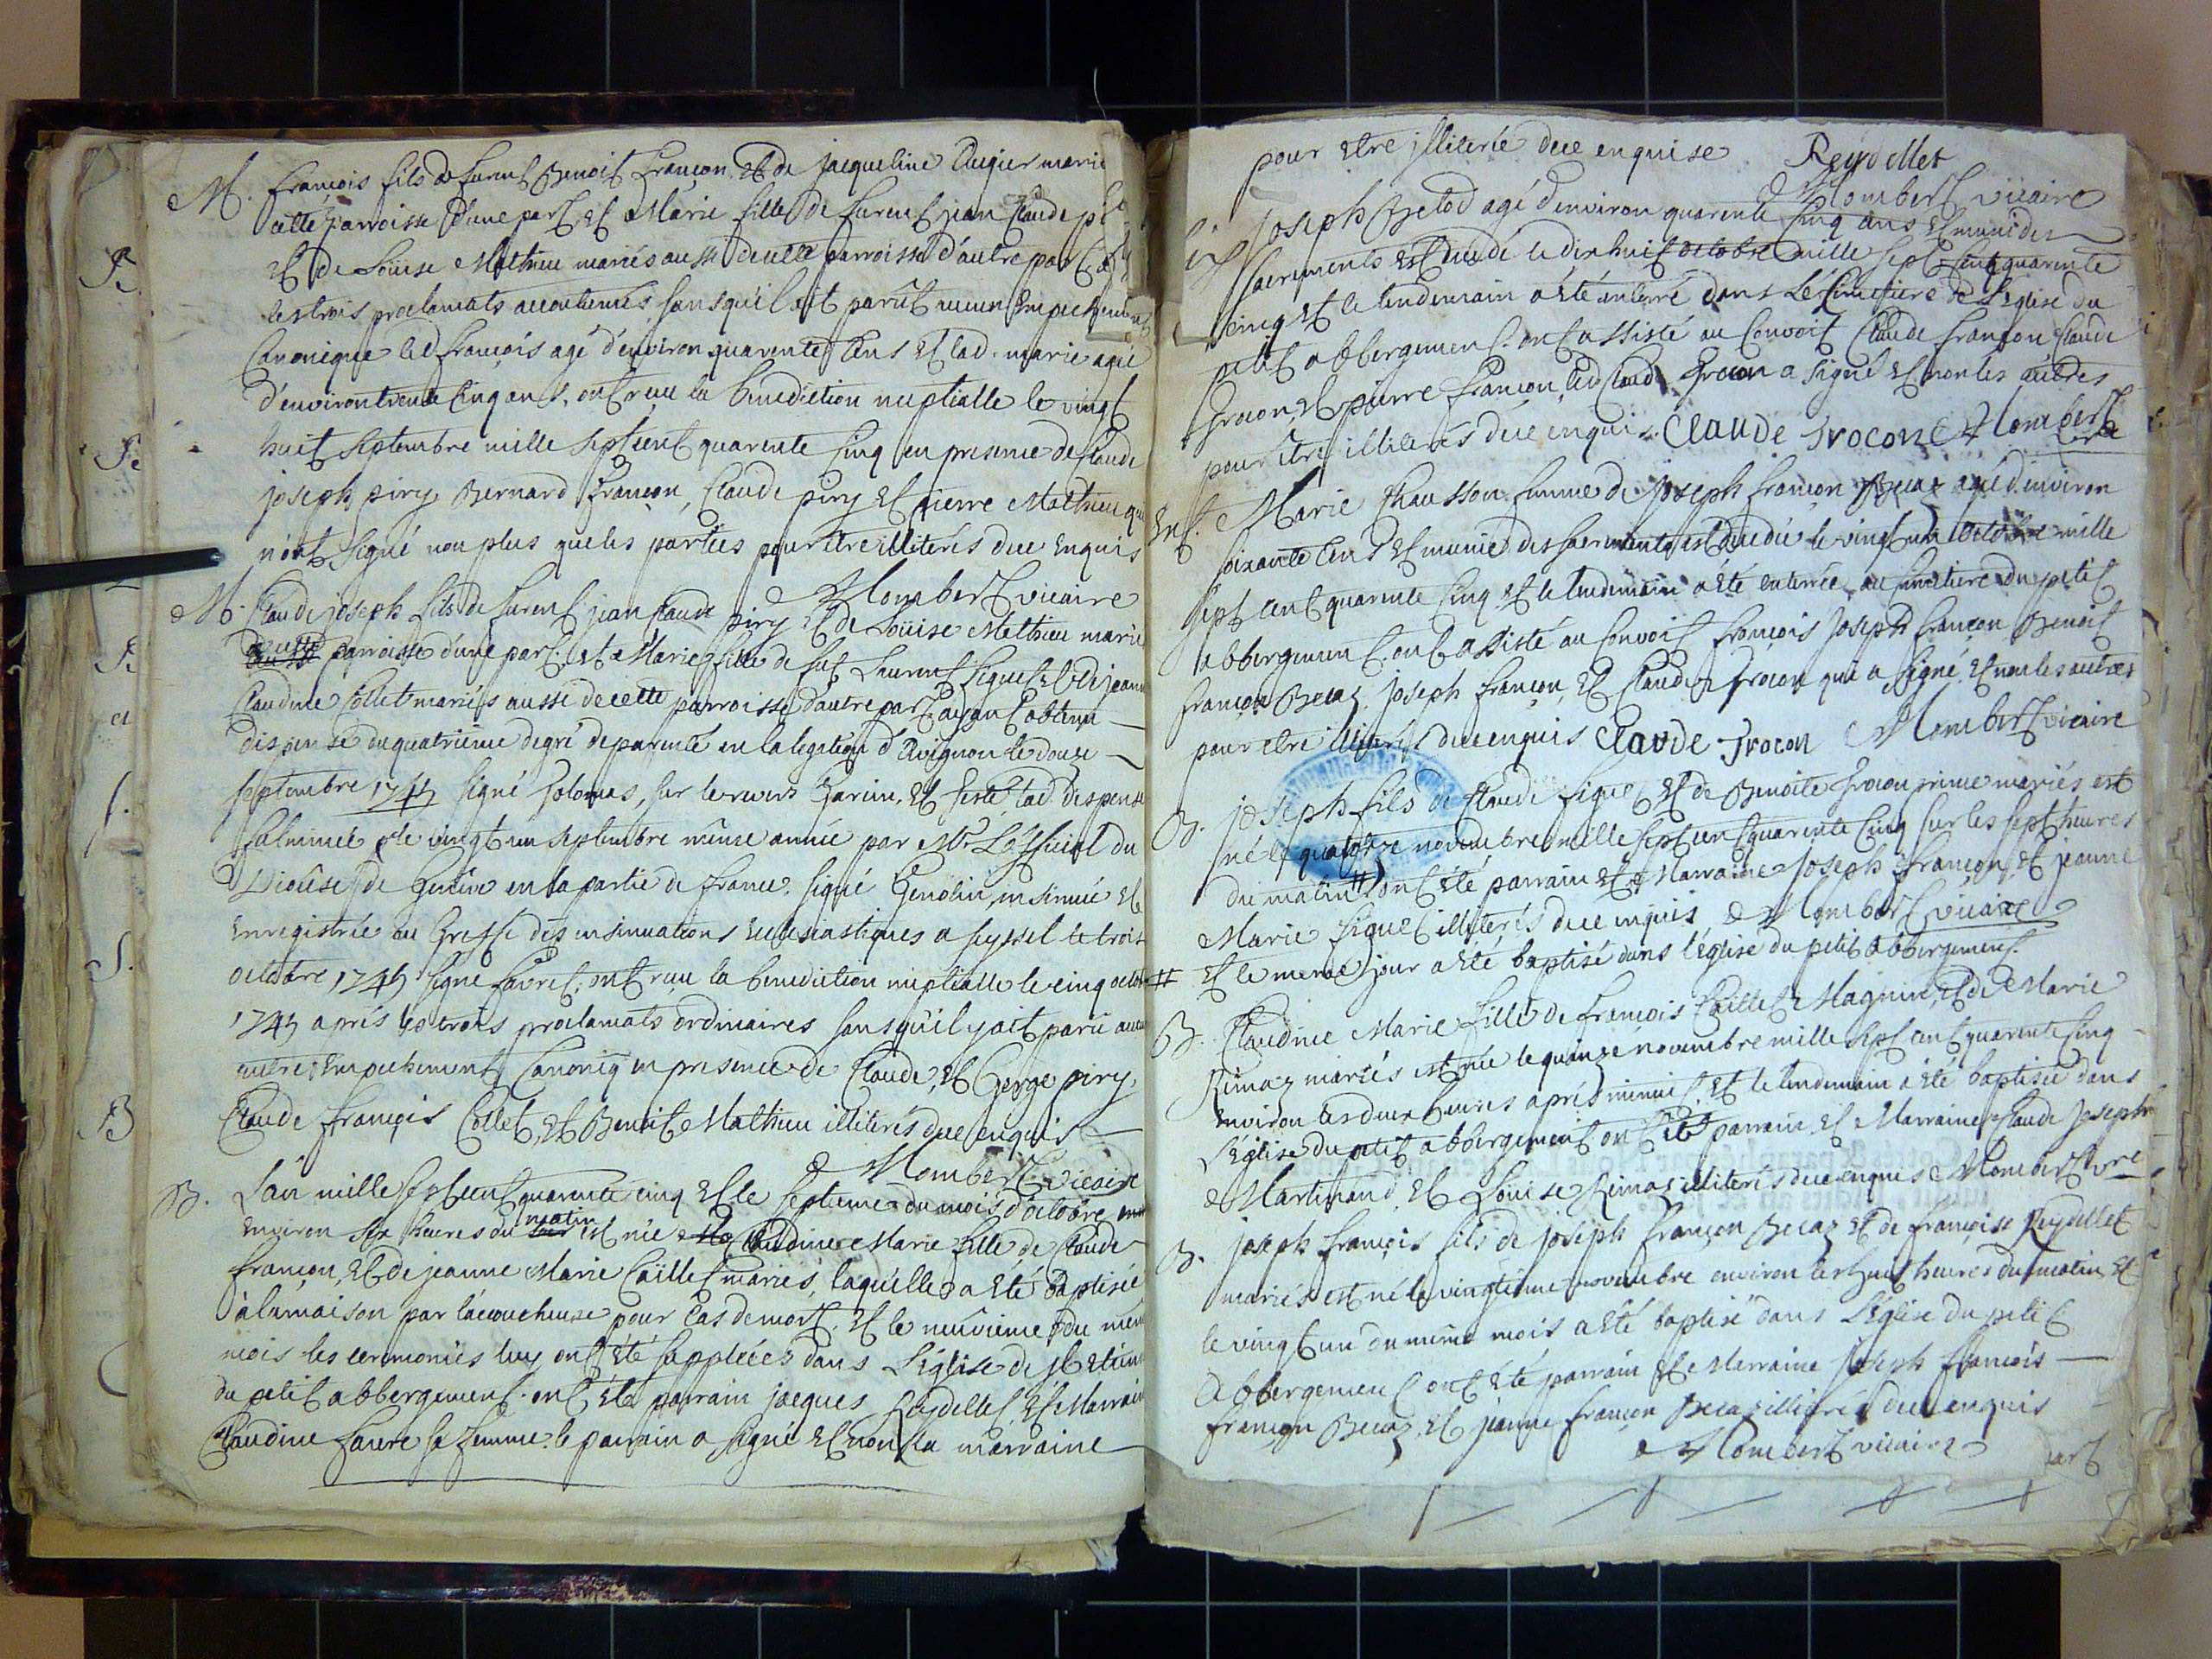 M. françois fils de furent Benoit françon, et de jacqueline Augier marié
cette parroisse d'une part, et Marie fille de furent jean Claude
et de Loüise Mathieu mariés aussi de cette parroisse d'autre part
les trois proclamats accoutumés, sans qu'il ait parût aucun Empechement
Canonique led. françois agé d'environ quarente ans et lad. marie agée
d'environ trente Cinq ans, ont reçu la benediction nuptialle le vingt
huit Septembre mille Sept cent quarente Cinq en presence de Claude
joseph piry, Bernard françon, Claude piry et pierre Mathieu qui
n'ont Signé non plus que les parties pour être illiterés düe Enquis
Mombert vicaire
M. Claude joseph fils de furent jean Claude piry et de Loüise Mathieu mariés
de cette parroisse d'une part. et Marie fille de fut Laurent Figuet et de jeanne
Claudine Collet mariés aussi de cette parroisse d'autre part ayant obtenu
dispense du quatrieme degré de parenté en la legation d'Avignon le douze
Septembre 1745 Signé Solomas, sur le revers Garcin, et lad. dispense
fulminée le vingt un Septembre même année par Mr L'official du
Diocèse de Genève en la partie de france. Signé Genolin, insinuée et
Enregistrée au Greffe des insinuations Ecclesiastiques a Seyssel le trois
octobre 1745 Signé favre, ont reçu la benediction nuptialle le cinq octobre
1745 aprés les trois proclamats ordinaires sans qu'il y ait parû aucun
autre Empechement Canoniq en presence de Claude, et George piry,
Claude françois Collet, et Benoit Mathieu illiterés düe enquis
Mombert vicaire
B. L'an mille Sept cent quarente cinq et le Septieme du mois d'octobre
Environ Six heures du matin est née Claudine Marie fille de Claude
françon, et de jeanne Marie Caillet mariés, laquelle a été baptisée
à la maison par l'accoucheuse pour Cas de mort. et le neuvieme du même
mois les ceremonies luy ont été suppléées dans L'église de
du petit abbergement. ont été parrain jacques Reydellet, et Marraine
Claudine favre sa femme. le parrain a Signé et non la marraine
pour être jlliterée düe enquise Reydellet
Mombert vicaire
joseph Belod agé d'environ quarente Cinq ans et muni des
Sacrements est decedé le dix huit octobre mille Sept Cent quarente
cinq et le lendemain a été enterré dans Le Cimetiere de L'église du
petit abbergement. ont assisté au Convoit Claude françon Claude
Grocon et pierre françon, led. Claude Grocon a Signé et non les autres
pour être illiterés düe enquis. Claude Grocon Mombert
Ent. Marie Chausson femme de joseph françon Becaz agée d'environ
soixante Cens et munie des sacrements est decedée le vingt un octobre mille
sept cent quarente Cinq et le lendemain a été enterrée au Cimetiere du petit
abbergement. ont assisté au Convoit françois joseph françon Benoit
françon Becaz, joseph françon, et Claude Grocon qui a Signé, et non les autres
pour être illiterés düe enquis Claude Grocon Mombert vicaire
B. joseph fils de Claude Figuet et de Benoite Grocon mariés est
né le quatorze novembre mille Sept cent quarente Cinq sur les sept heures
du matin # ont été parrain et Marraine joseph françon, et jeanne
Marie Figuet illiterés düe enquis Mombert vicaire
# et le meme jour a été baptisé dans l'église du petit abbergement.
B. Claudine Marie fille de françois Caillet Magnin, et de Marie
Rimaz mariés est née le quinze novembre mille Sept cent quarente Cinq
Environ les deux heures aprés minuit. et le lendemain a été baptisée dans
l'église du petit abbergement ont été parrain et Marraine Claude joseph
Martinand, et Loüise Rimaz illiterés düe enquis Mombert vre
B. joseph françois fils de joseph françon Becaz et de françoise Reydellet
mariés est né le vingtieme novembre environ les huit heures du matin et
le vingt un du même mois a été baptisé dans L'église du petit
Abbergement ont été parrain et Marraine joseph françois
françon Becaz, et jeanne françon Becaz illiterés düe enquis
Mombert vicaire